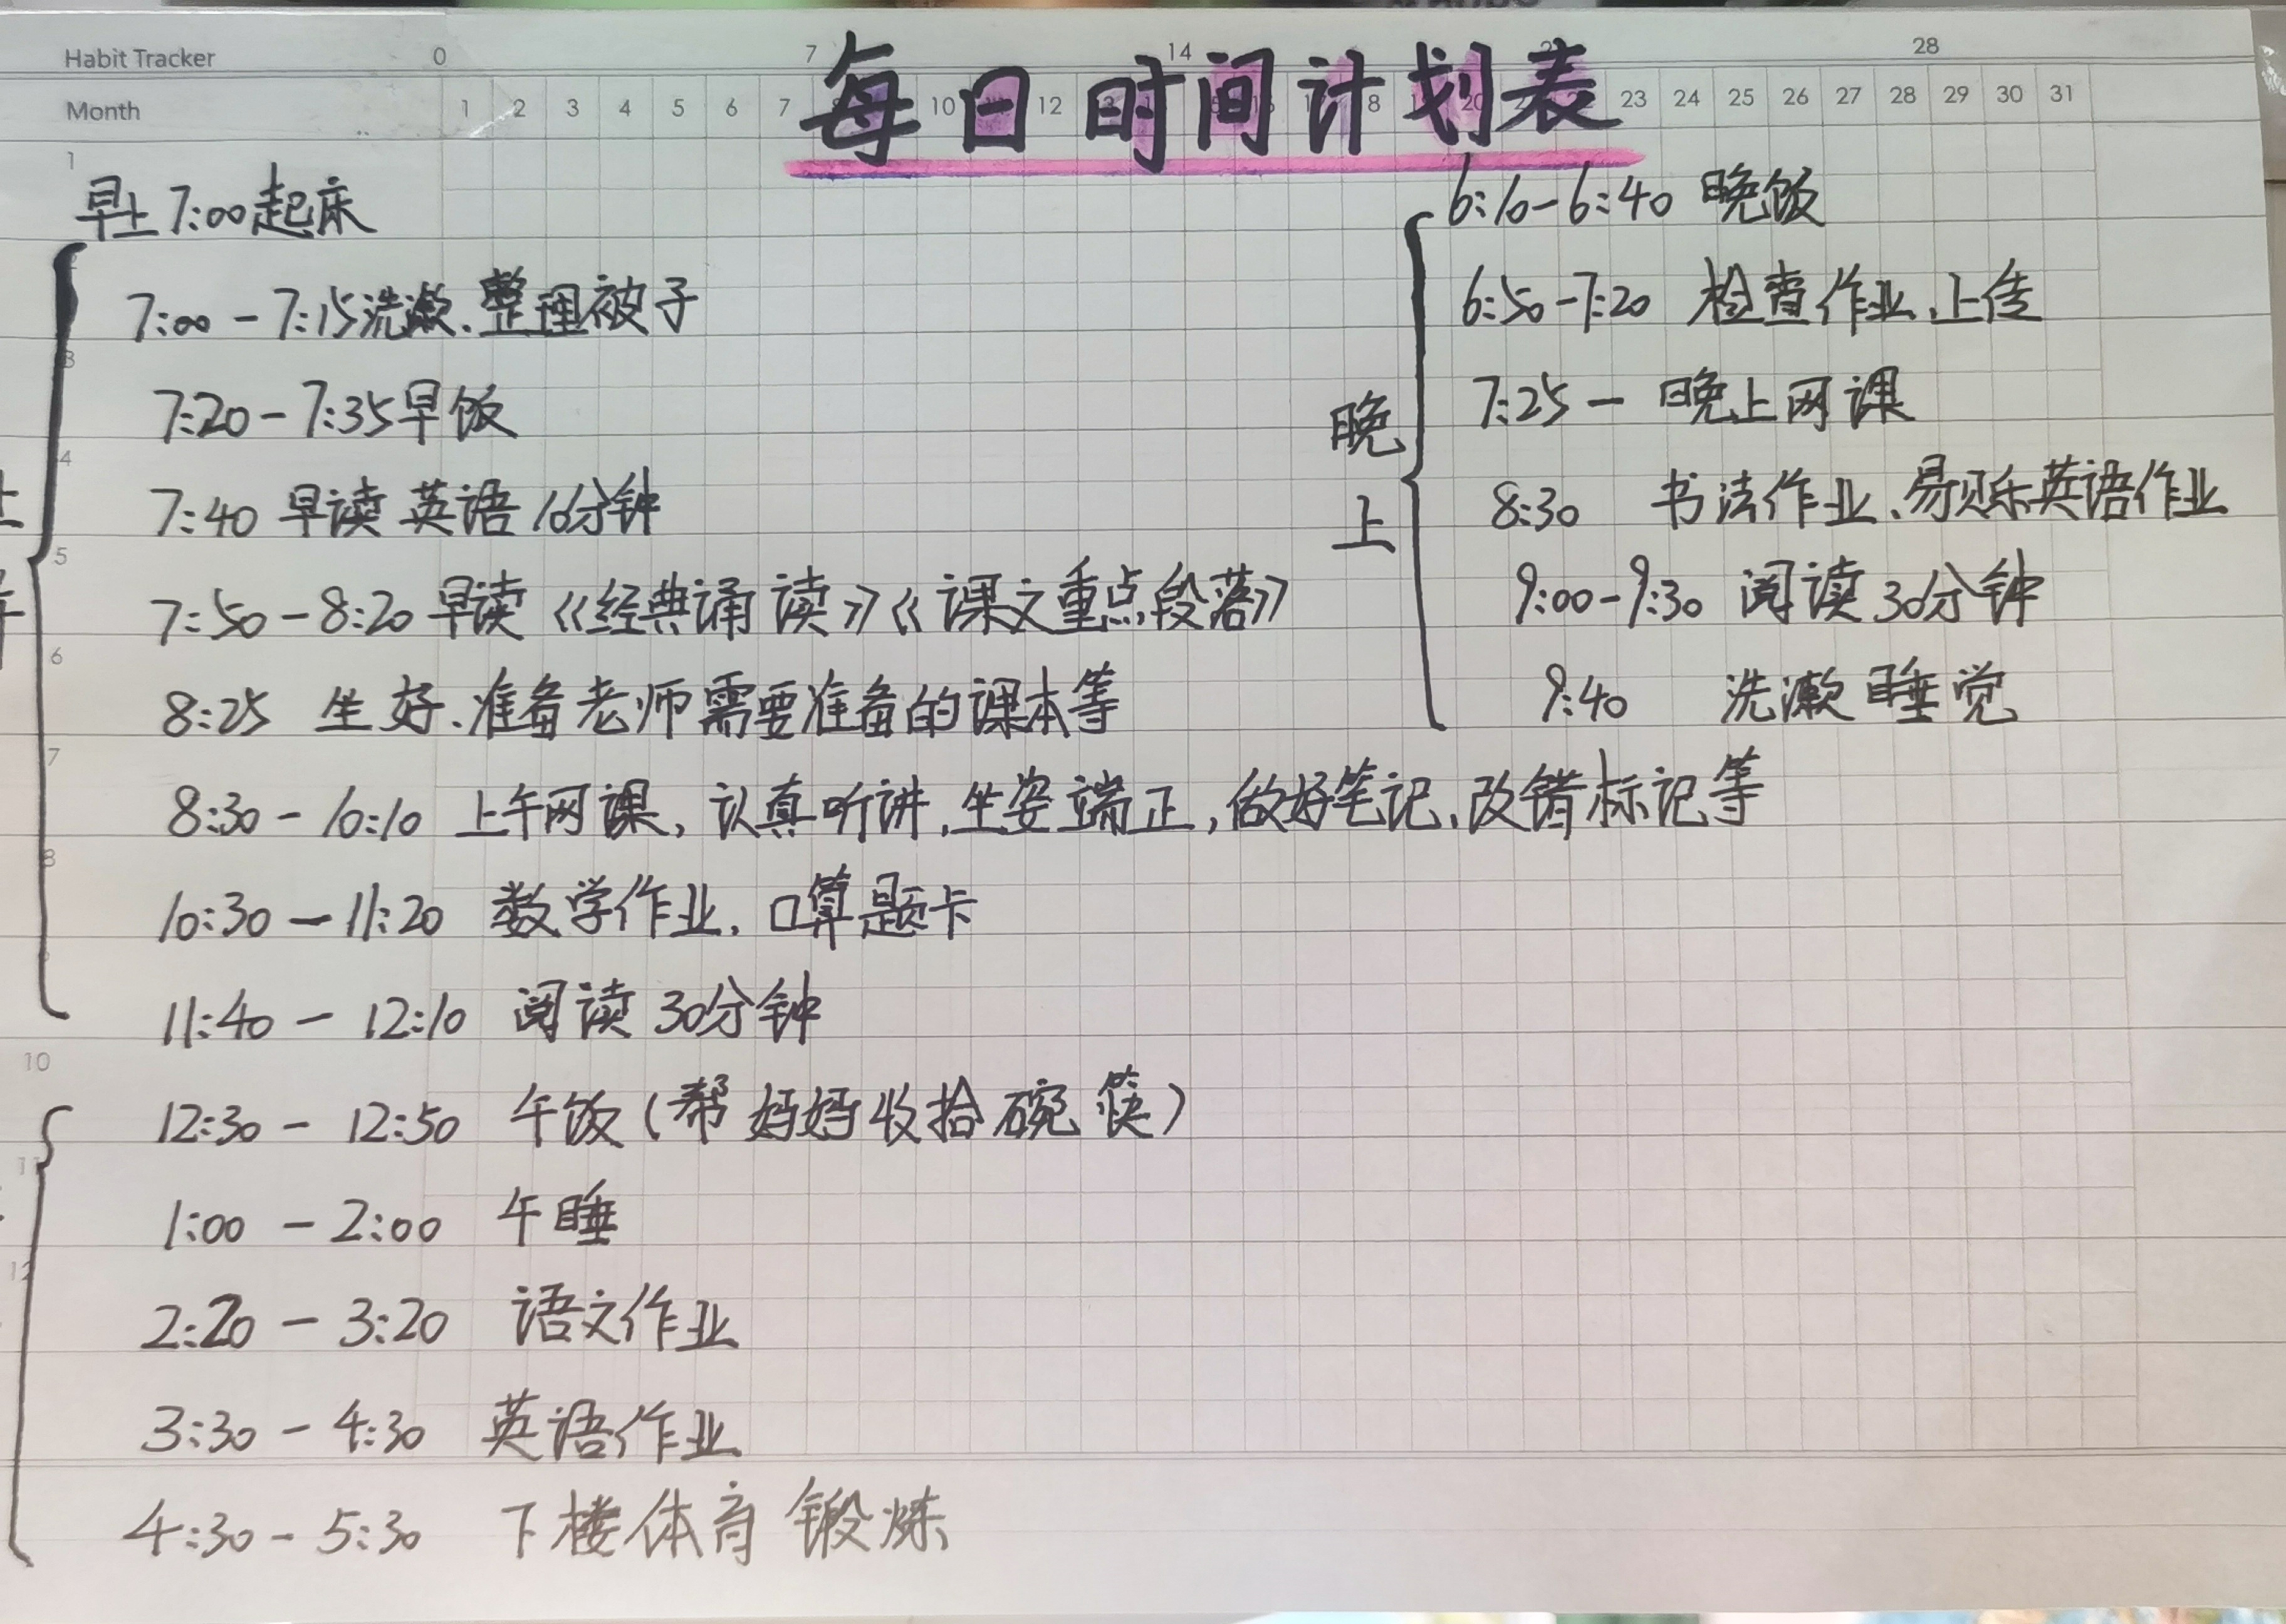 Habit Tracker 0 7 14 28
Month 1 2 3 4 5 6 7 10 12 8 20 23 24 25 26 27 28 29 30 31
每日时间计划表
早上7:00起床
7:00-7:15洗漱、整理被子
7:20-7:35早饭
7:40 早读 英语10分钟
7:50-8:20 早读《经典诵读》《课文重点段落》
8:25 坐好、准备老师需要准备的课本等
8:30-10:10 上午网课, 认真听讲,坐姿端正,做好笔记、改错标记等
10:30-11:20 数学作业、口算题卡
11:40-12:10 阅读30分钟
12:30-12:50 午饭(帮妈妈收拾碗筷)
1:00-2:00 午睡
2:20-3:20 语文作业
3:30-4:30 英语作业
4:30-5:30 下楼体育锻炼
晚上
6:10-6:40 晚饭
6:50-7:20 检查作业、上传
7:25- 晚上网课
8:30 书法作业、易贝乐英语作业
9:00-9:30 阅读30分钟
9:40 洗漱睡觉
1
3
4
5
6
7
8
10
11
12